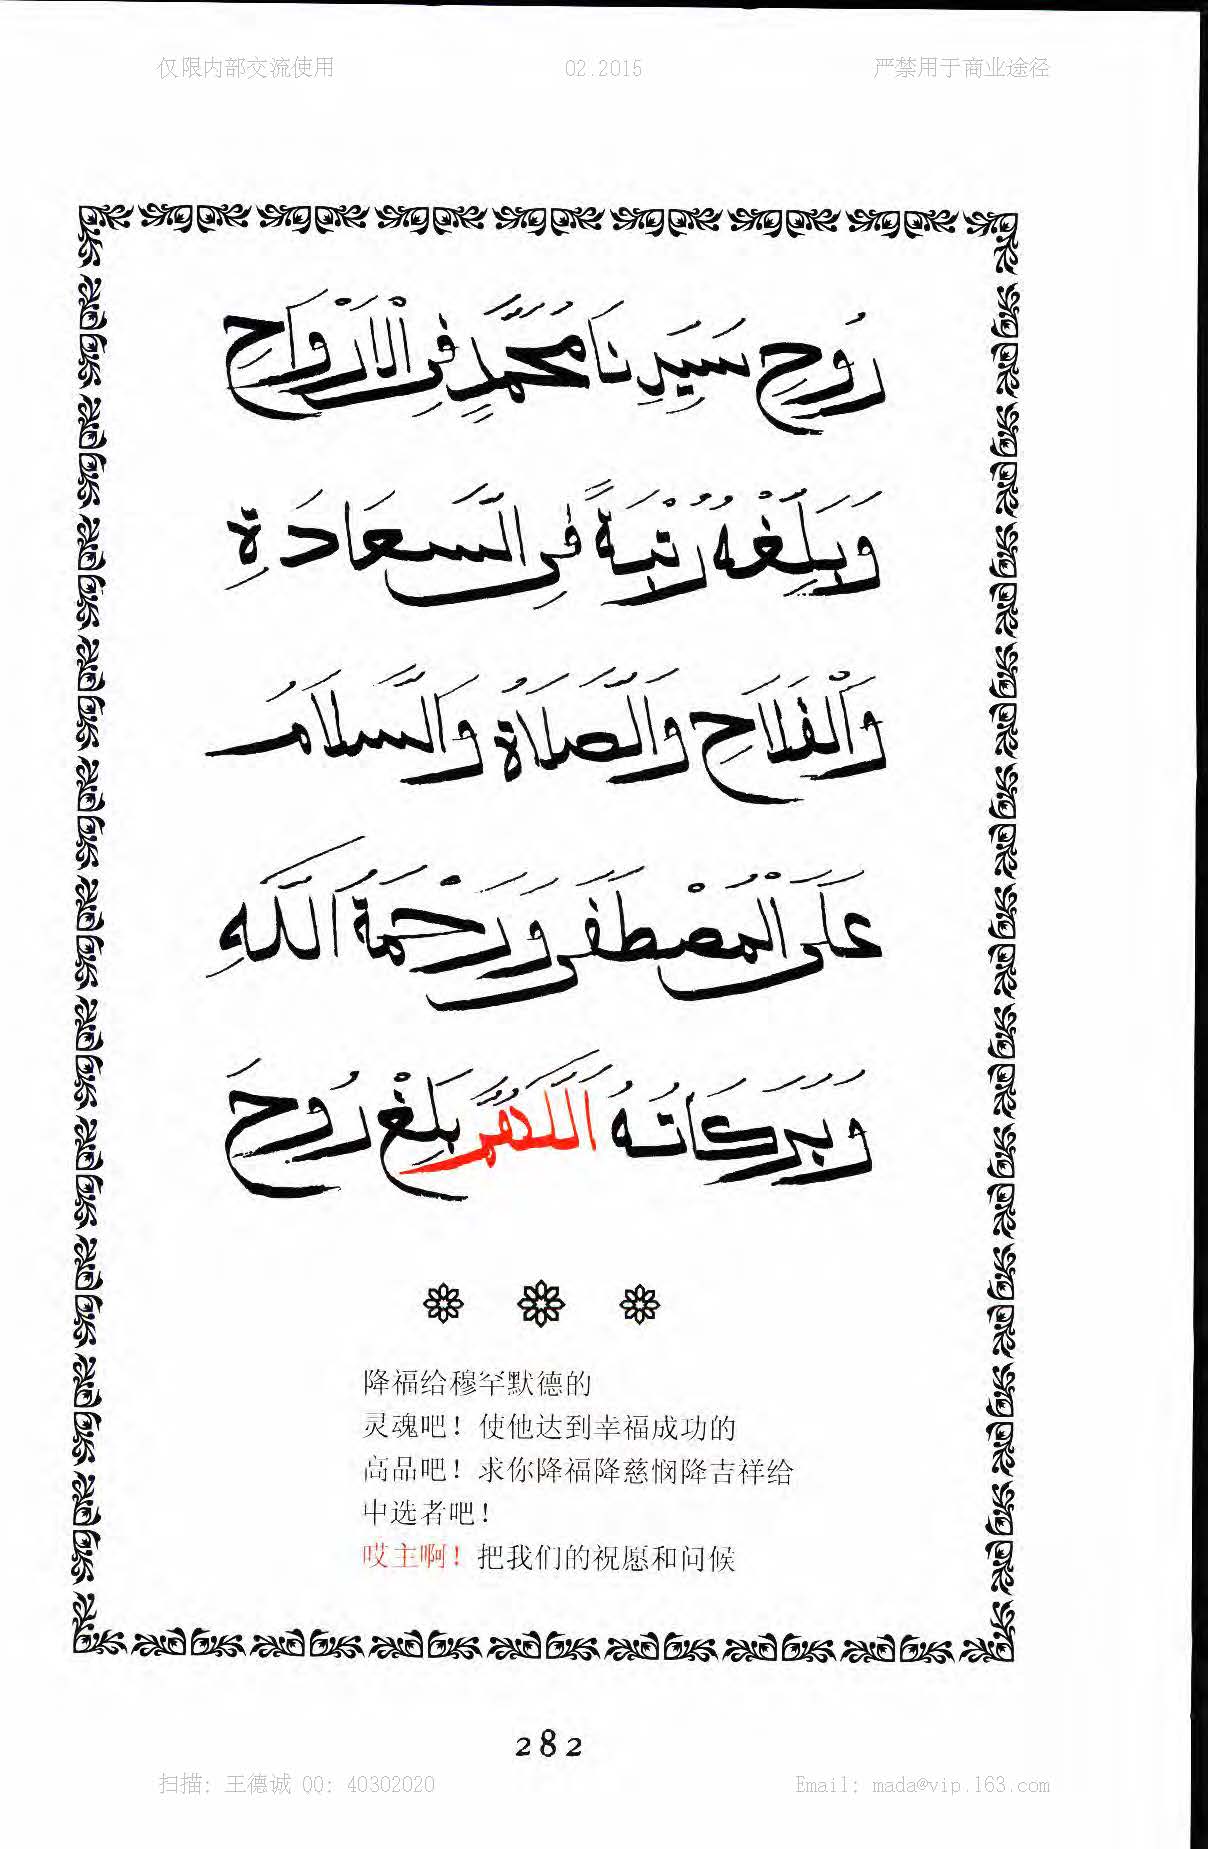 仅限内部交流使用 02.2015 严禁用于商业途径
رُوحِ سَيِّدِنَا مُحَمَّدٍ فِي الْأَرْوَاحِ
وَبَلِّغْهُ رُتْبَةً فِي السَّعَادَةِ
وَالْفَلَاحِ وَالصَّلَاةُ وَالسَّلَامُ
عَلَى الْمُصْطَفَى وَرَحْمَةُ اللَّهِ
وَبَرَكَاتُهُ اَللَّهُمَّ بَلِّغْ رُوحَ
降福给穆罕默德的
灵魂吧！使他达到幸福成功的
高品吧！求你降福降慈悯降吉祥给
中选者吧！
哎主啊！把我们的祝愿和问候
282
扫描: 王德诚 QQ: 40302020 Email: mada@vip.163.com